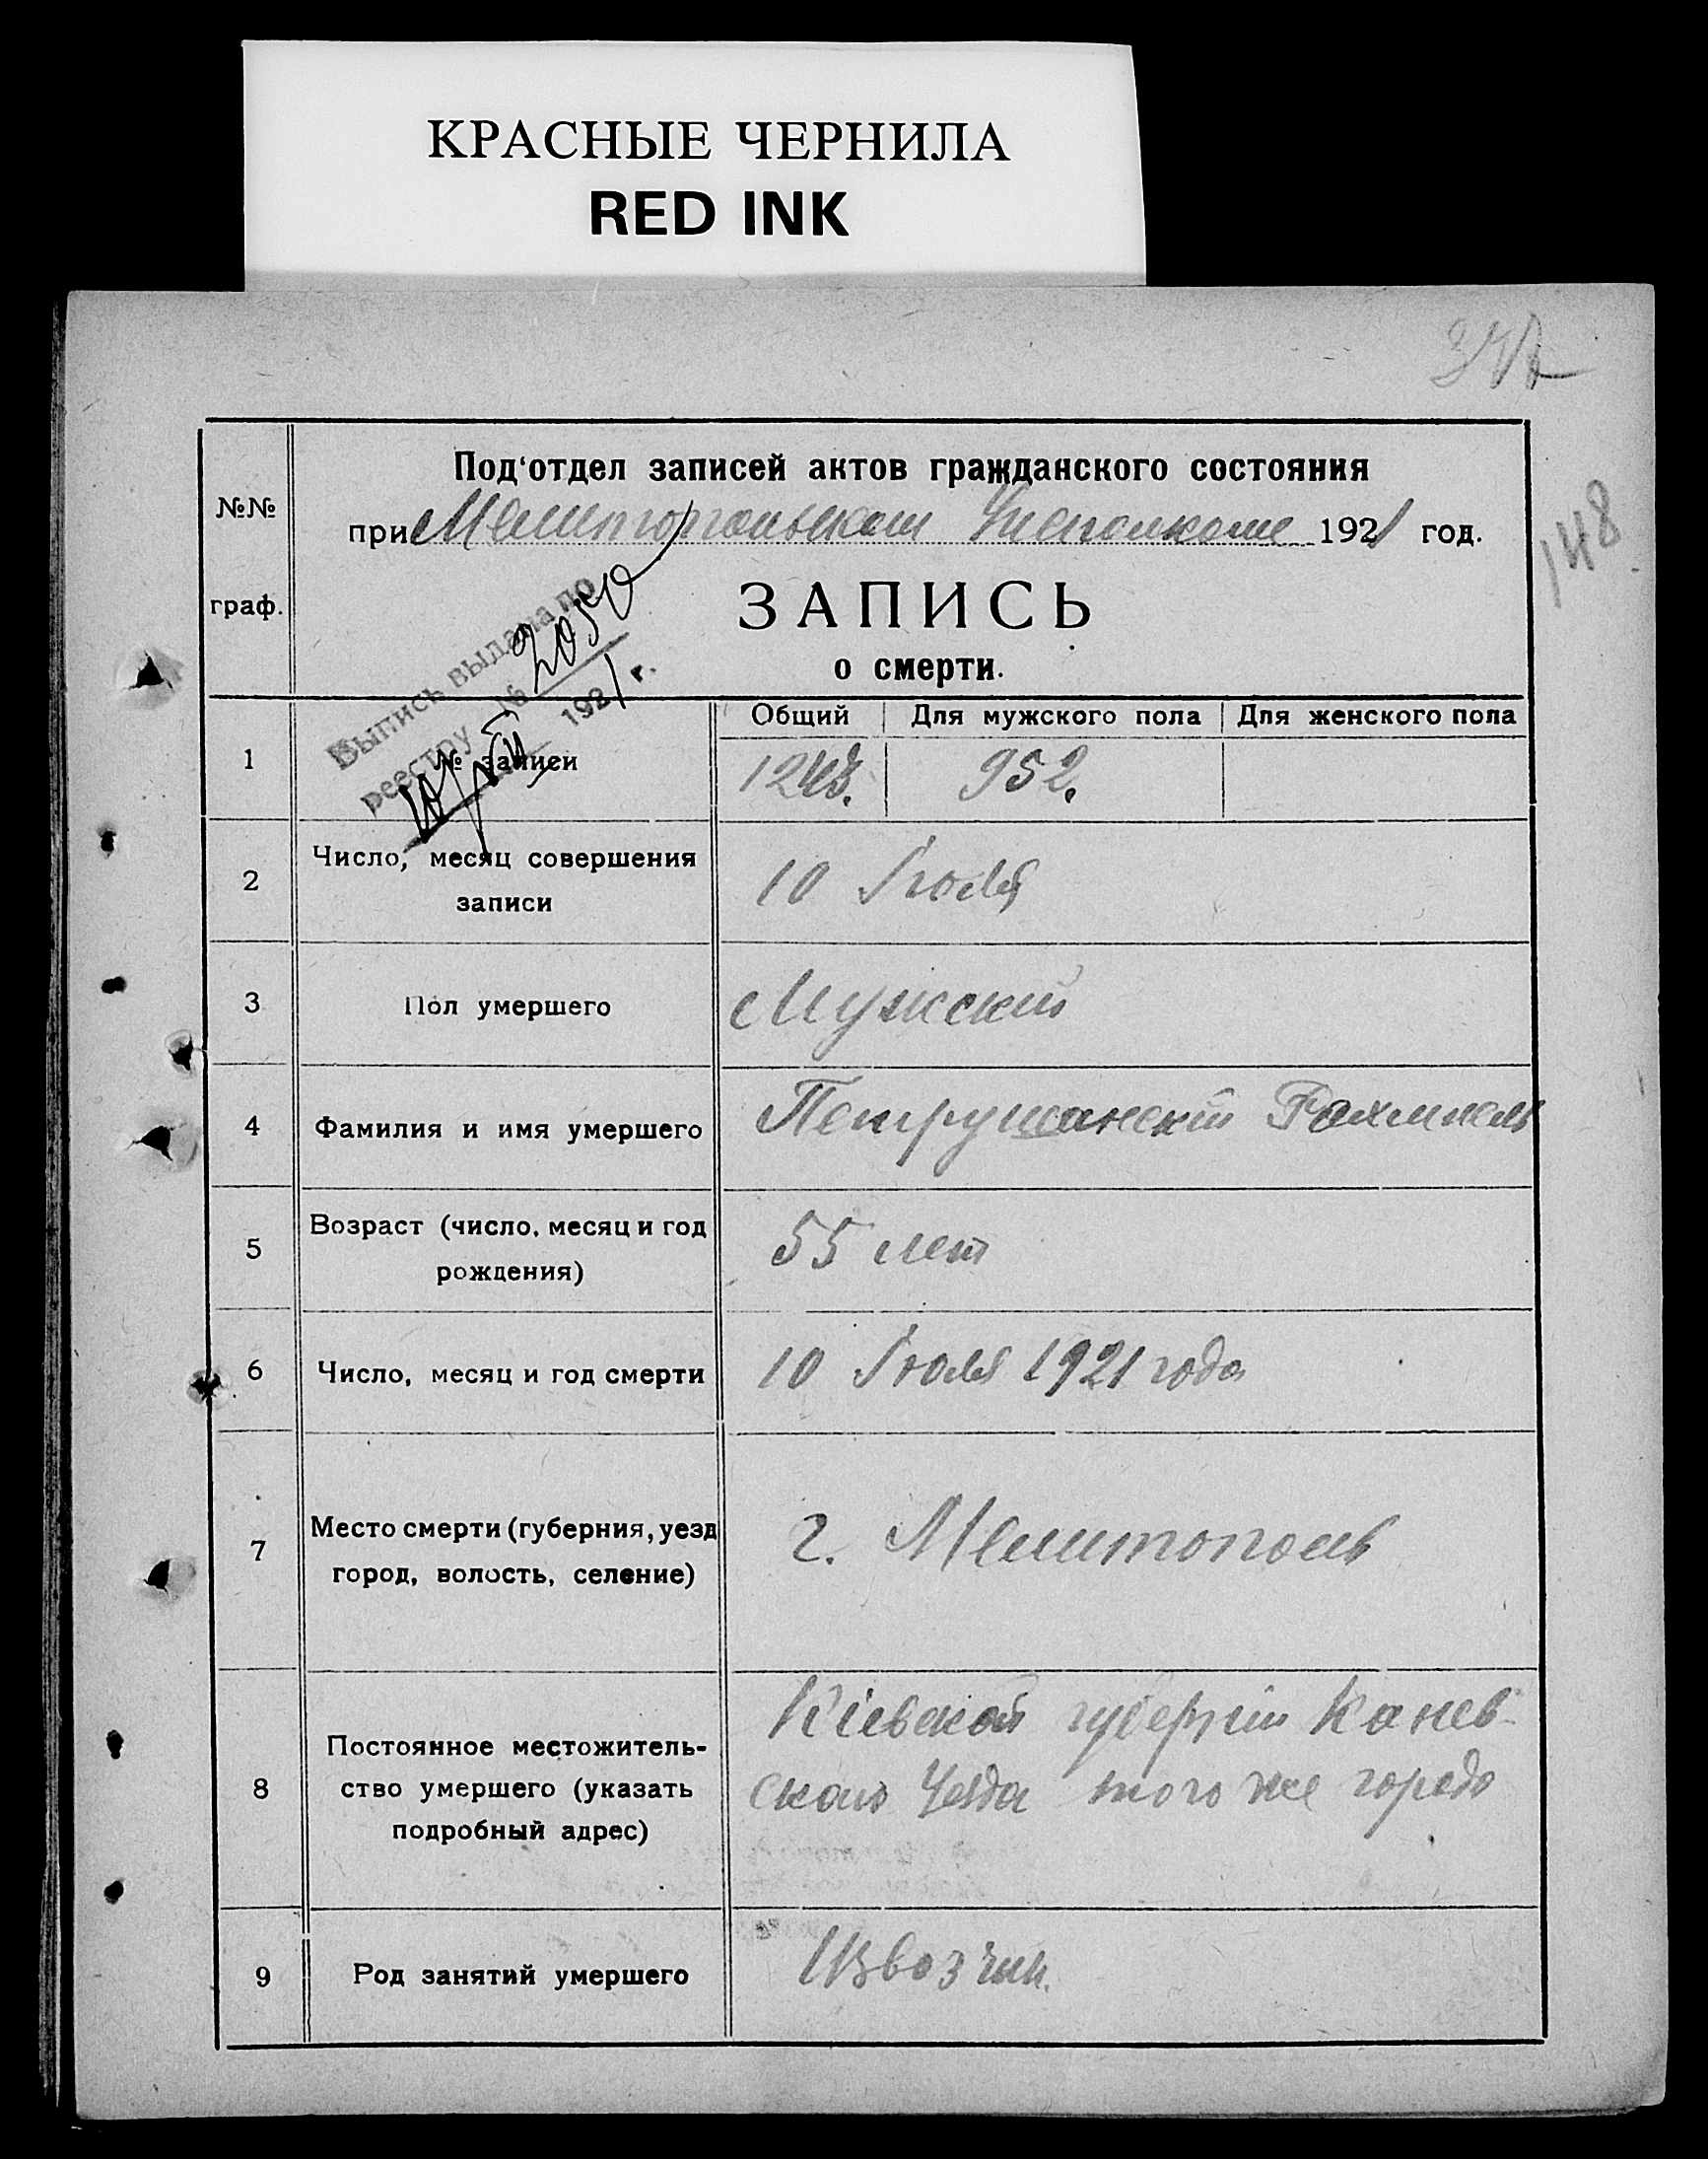 КРАСНЫЕ ЧЕРНИЛА
RED INK
148
№№ граф.
Под'отдел записей актов гражданского состояния
при Мелитопольском 1921 год.
ЗАПИСЬ
о смерти.
Выпись выдана по
реестру № 2050
1921 г.
Общий Для мужского пола Для женского пола
1 № записи 952.
2 Число, месяц совершения
записи
10 Іюля
3 Пол умершего Мужский
4 Фамилия и имя умершего Петрушанскій Рахмиель
5 Возраст (число, месяц и год
рождения)
55 лет
6 Число, месяц и год смерти 10 Іюля 1921 года
7 Место смерти (губерния, уезд
город, волость, селение)
г. Мелитополь
8 Постоянное местожитель-
ство умершего (указать
подробный адрес)
Кіевской губерніи Канев-
ского Уезда того же города
9 Род занятий умершего Извозчик.